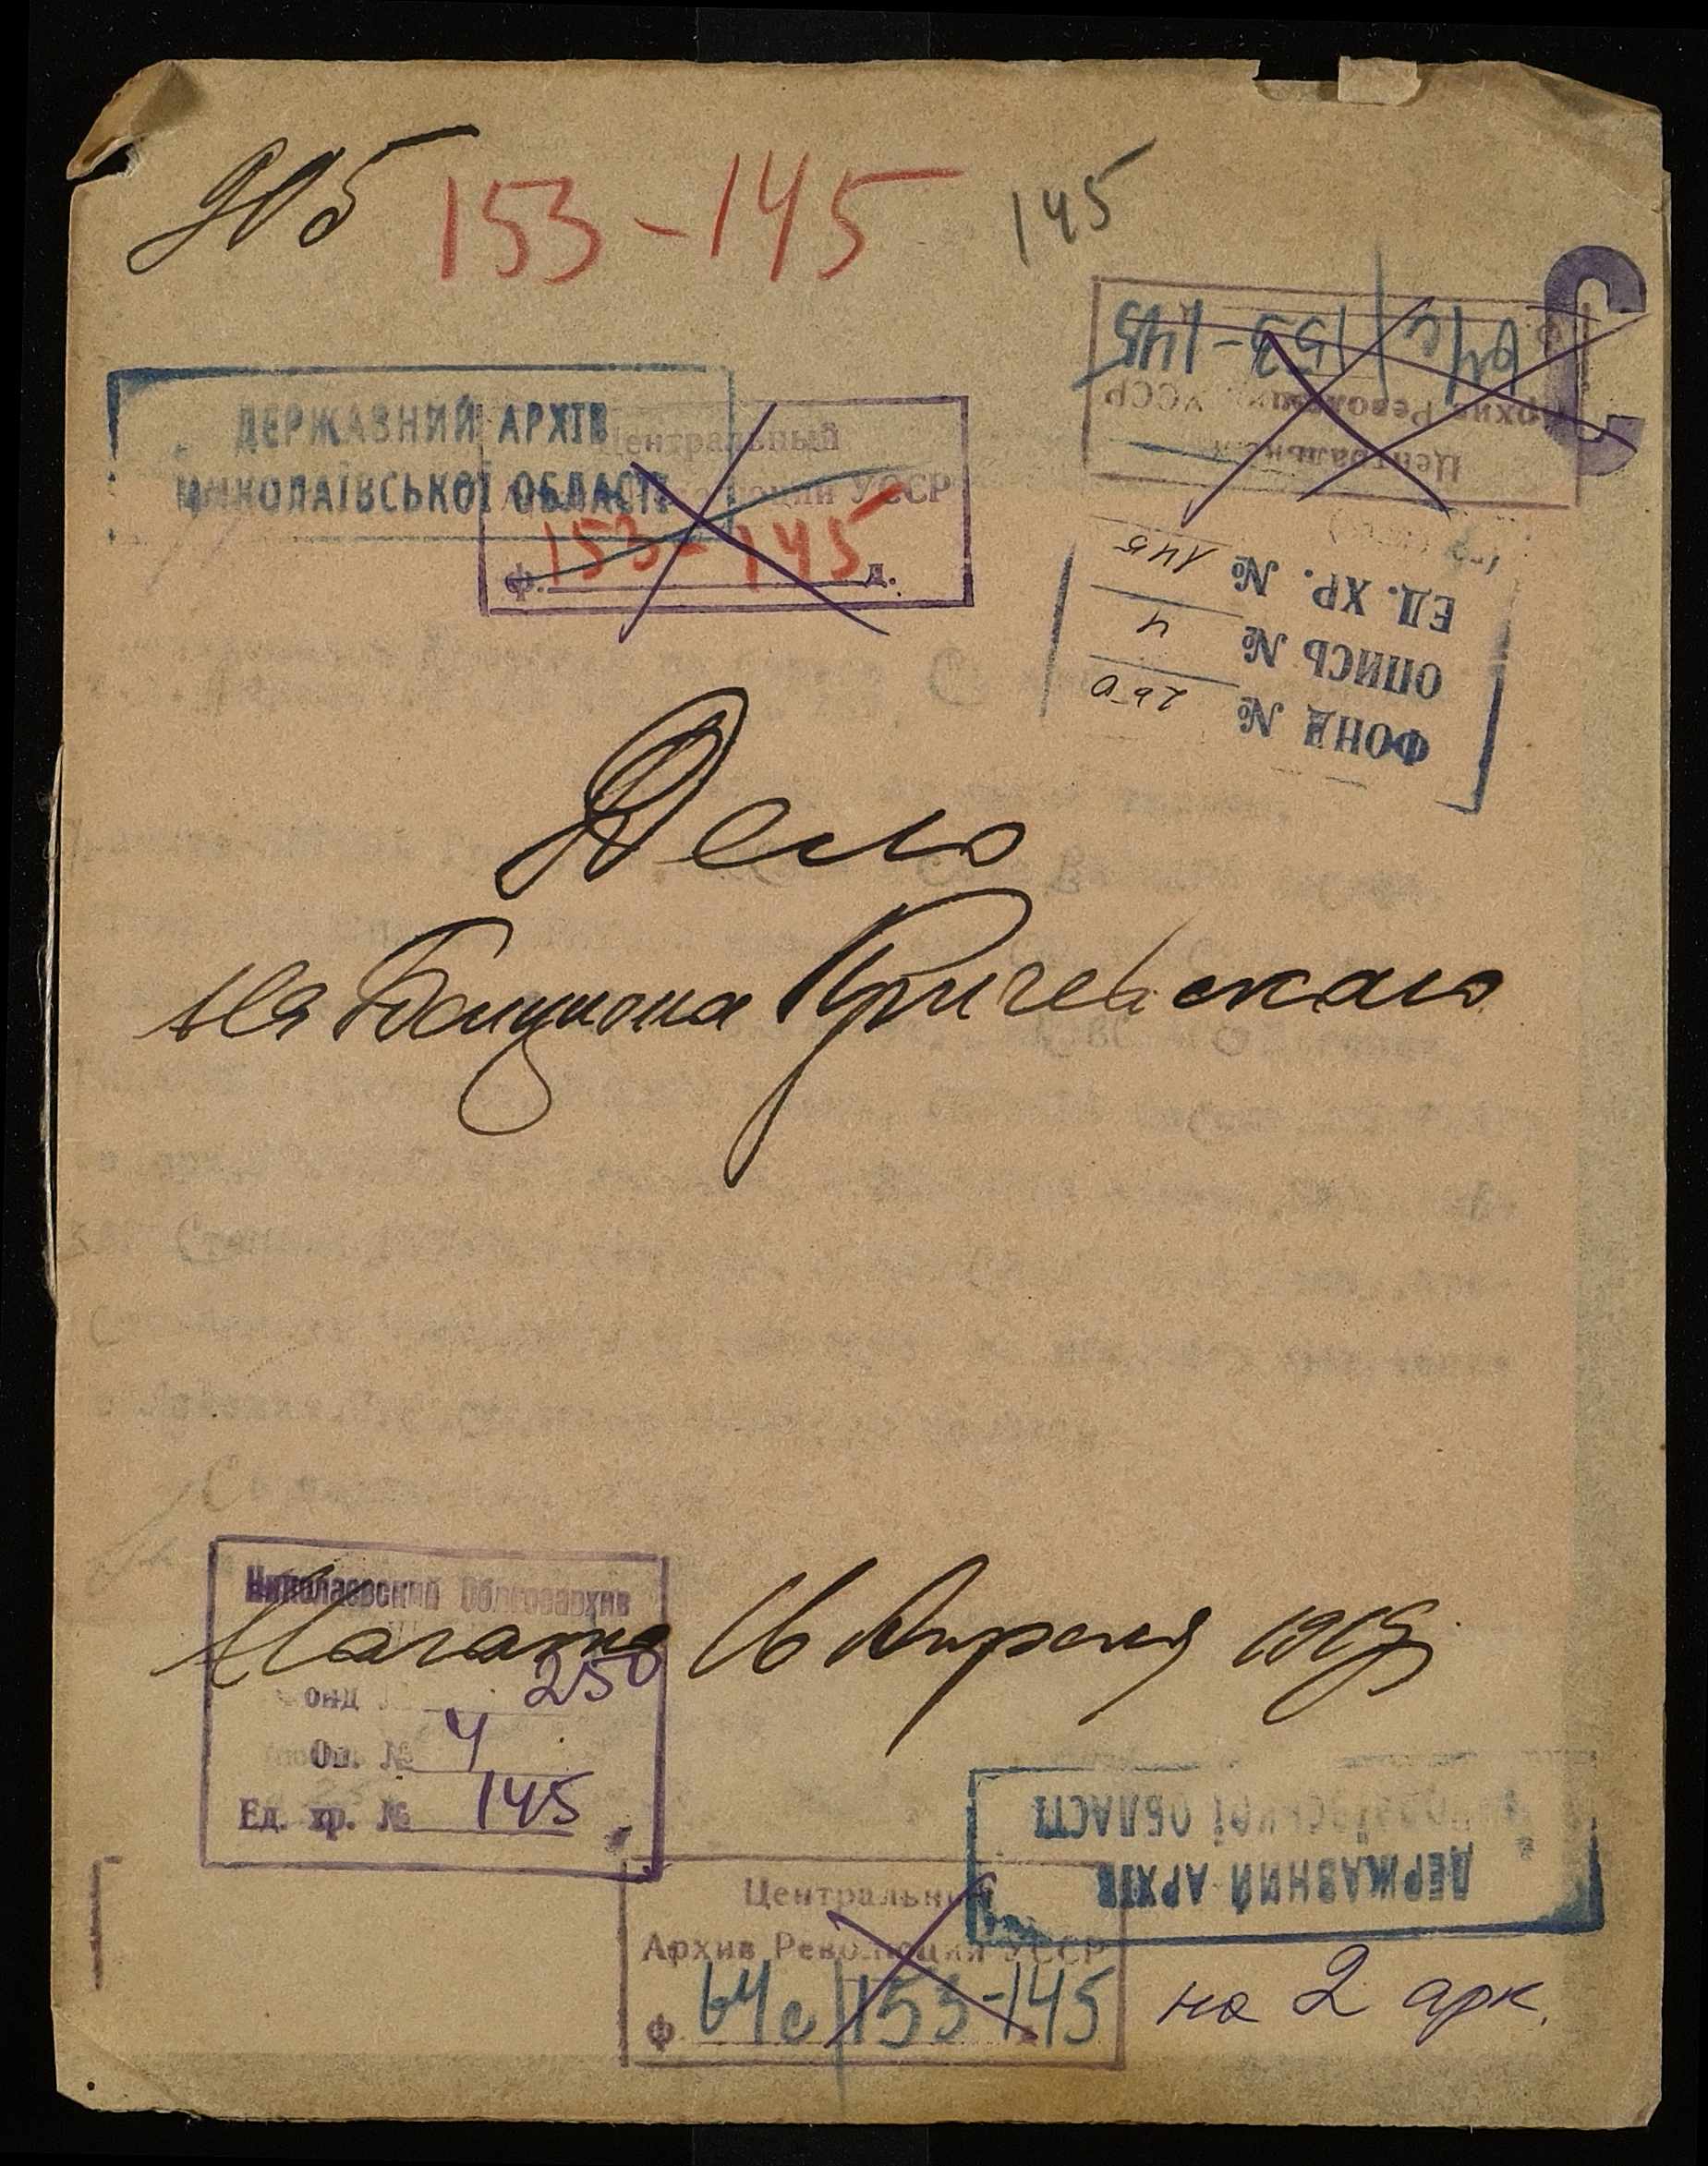 905 153-145 145
Центральный
Архив Революции УССР
64с 153-145
ДЕРЖАВНИЙ АРХІВ
МИКОЛАЇВСЬКОЇ ОБЛАСТІ
Центральный
Революции УССР
ф. 153-145 д.
ФОНД № 250
ОПИСЬ № 4
ЕД. ХР. № 145
Дело
на Бенциона Кричевскаго
Начато 16 Апреля 1919
Николаевский Облгосархив
Фонд 250
Оп. № 4
Ед. хр. № 145
ДЕРЖАВНИЙ АРХІВ
МИКОЛАЇВСЬКОЇ ОБЛАСТІ
Центральный
Архив Революции УССР
ф. 64с 153-145
на 2 арк.